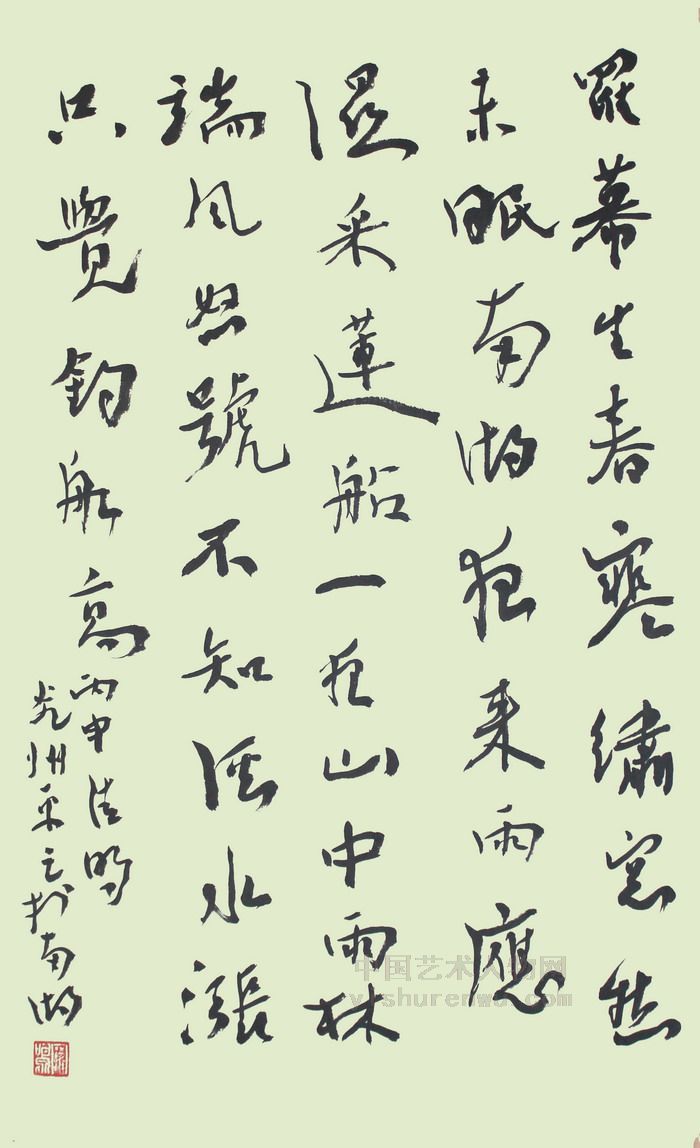 羅幕生春寒繡窗愁
未眠南湖夜來雨應
濕采蓮船一夜山中雨林
端風怒號不知溪水漲
只覺釣船高
丙申清明
兗州之於南湖
中国艺术人物网